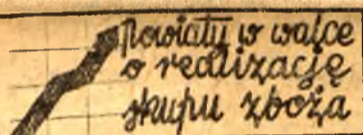 powiaty w walce
o realizację
skupu zboża